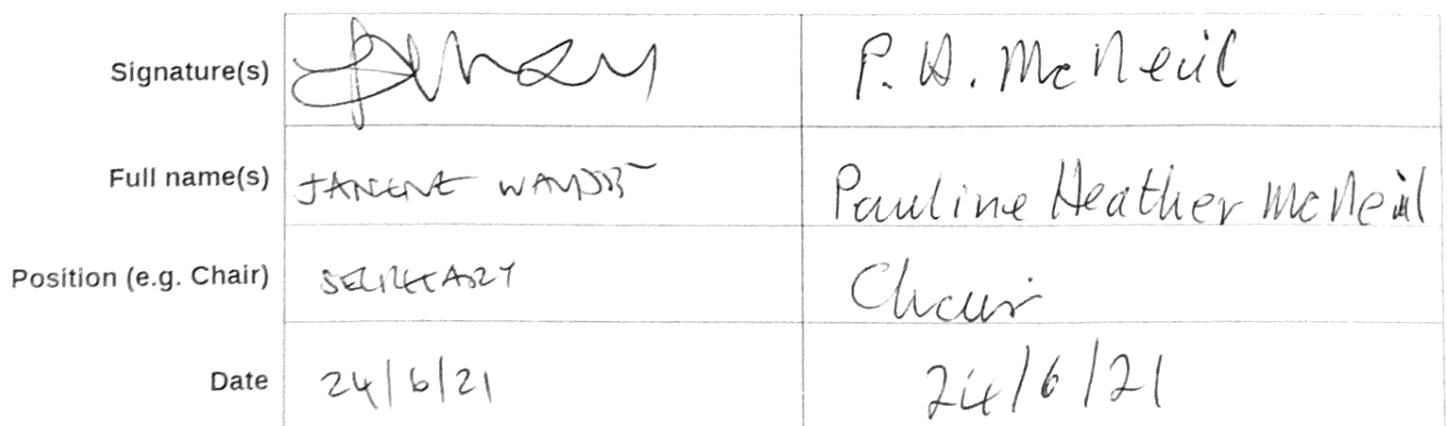 Signature(s) P. H. McNeil
Full name(s) JANENE Pauline Heather McNeil
Position (e.g. Chair) SECRETARY Chair
Date 24/6/21 24/6/21